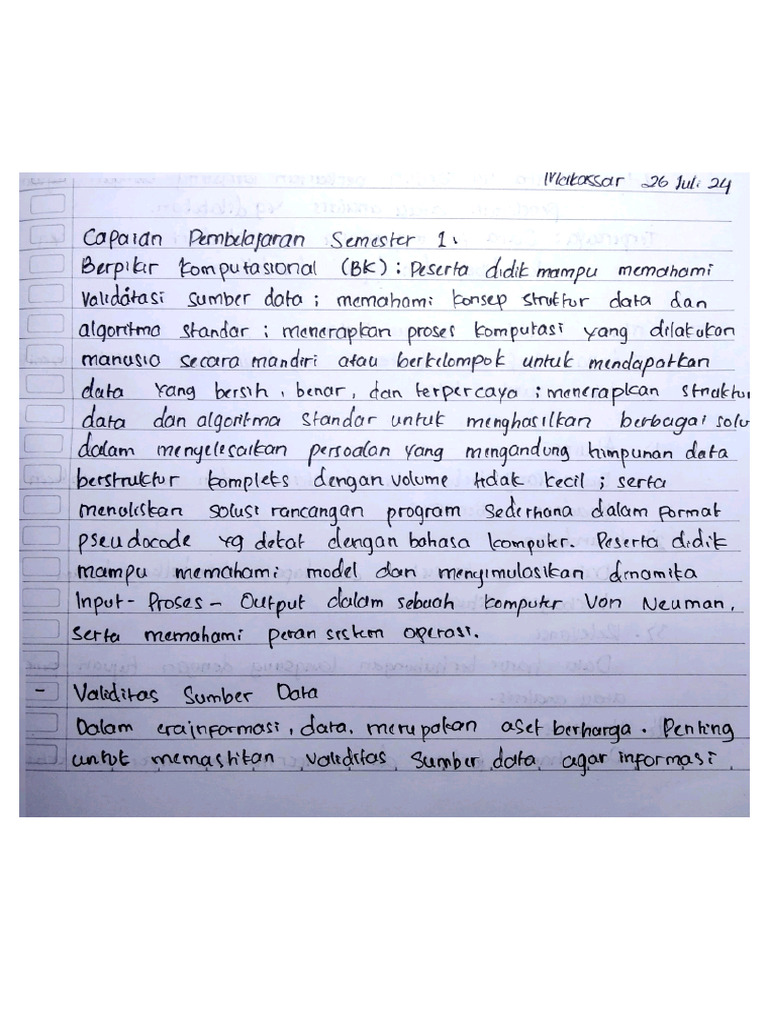 Makassar 26 Juli 24
Capaian Pembelajaran Semester 1.
Berpikir Komputasional (BK) : Peserta didik mampu memahami
Validatasi sumber data ; memahami konsep struktur data dan
algoritma standar ; menerapkan proses komputasi yang dilakukan
manusia secara mandiri atau berkelompok untuk mendapatkan
data yang bersih, benar, dan terpercaya ; menerapkan struktur
data dan algoritma standar untuk menghasilkan berbagai solu
dalam menyelesaikan persoalan yang mengandung himpunan data
berstruktur kompleks dengan volume tidak kecil ; serta
menuliskan solusi rancangan program sederhana dalam format
pseudocode yg dekat dengan bahasa komputer. Peserta didik
mampu memahami model dan mengimulasikan dinamika
Input - Proses - Output dalam sebuah komputer Von Neuman,
serta memahami peran sistem operasi.
- Validitas Sumber Data
Dalam era informasi, data, merupakan aset berharga. Penting
untuk memastikan validitas sumber data agar informasi